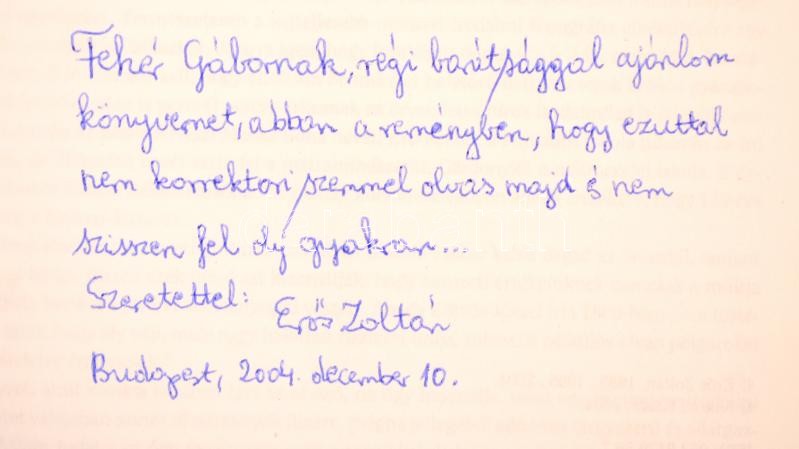 Fehér Gábornak, régi barátsággal ajánlom
könyvemet, abban a reményben, hogy ezuttal
nem korrektori szemmel olvas majd és nem
szisszen fel oly gyakran...
Szeretettel:
Erős Zoltán
Budapest, 2004. december 10.